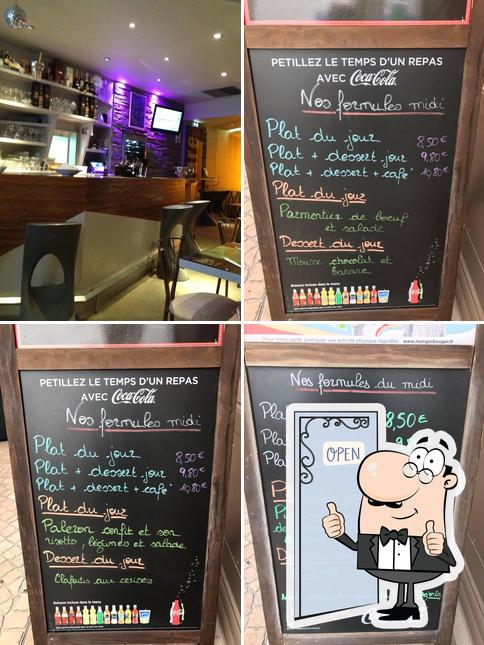 PETILLEZ LE TEMPS D'UN REPAS
AVEC Coca-Cola
Nos formules midi
Plat du jour 8,50€
Plat + dessert jour 9,80€
Plat + dessert + café 10,80€
Plat du jour
Parmentier de boeuf
et salade
Dessert du jour
Mousse chocolat et
banane
Boisson incluse dans le menu
PETILLEZ LE TEMPS D'UN REPAS
AVEC Coca-Cola
Nos formules midi
Plat du jour 8,50€
Plat + dessert jour 9,80€
Plat + dessert + café 10,80€
Plat du jour
Paleron confit et son
risotto, légumes et salade
Dessert du jour
Clafoutis aux cerises
Boisson incluse dans le menu
Pour votre santé, pratiquez une activité physique régulière. www.mangerbouger.fr
Nos formules du midi
8,50€
OPEN